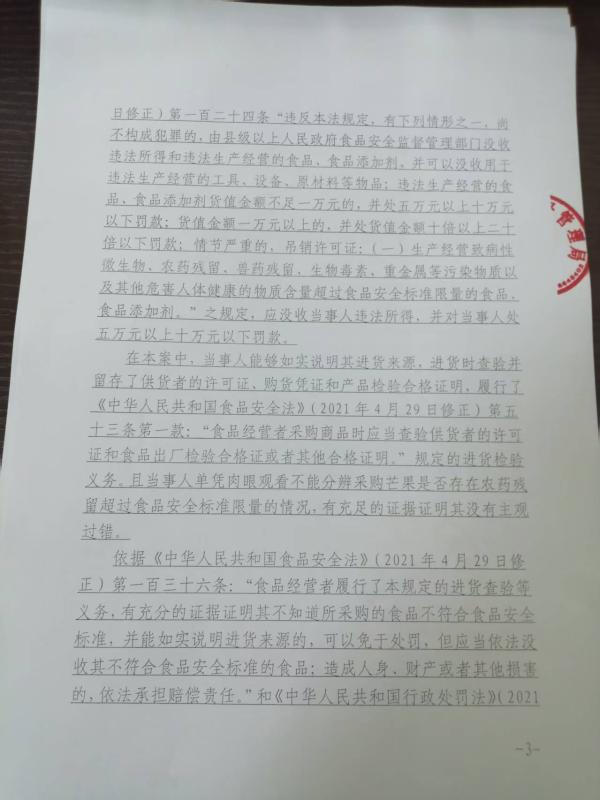 日修正）第一百二十四条“违反本法规定，有下列情形之一，尚
不构成犯罪的，由县级以上人民政府食品安全监督管理部门没收
违法所得和违法生产经营的食品、食品添加剂，并可以没收用于
违法生产经营的工具、设备、原材料等物品；违法生产经营的食
品、食品添加剂货值金额不足一万元的，并处五万元以上十万元
以下罚款；货值金额一万元以上的，并处货值金额十倍以上二十
倍以下罚款；情节严重的，吊销许可证：（一）生产经营致病性
微生物、农药残留、兽药残留、生物毒素、重金属等污染物质以
及其他危害人体健康的物质含量超过食品安全标准限量的食品、
食品添加剂。”之规定，应没收当事人违法所得，并对当事人处
五万元以上十万元以下罚款。
在本案中，当事人能够如实说明其进货来源，进货时查验并
留存了供货者的许可证、购货凭证和产品检验合格证明，履行了
《中华人民共和国食品安全法》（2021年4月29日修正）第五
十三条第一款：“食品经营者采购商品时应当查验供货者的许可
证和食品出厂检验合格证或者其他合格证明。”规定的进货检验
义务。且当事人单凭肉眼观看不能分辨采购芒果是否存在农药残
留超过食品安全标准限量的情况，有充足的证据证明其没有主观
过错。
依据《中华人民共和国食品安全法》（2021年4月29日修
正）第一百三十六条：“食品经营者履行了本规定的进货查验等
义务，有充分的证据证明其不知道所采购的食品不符合食品安全
标准，并能如实说明进货来源的，可以免于处罚，但应当依法没
收其不符合食品安全标准的食品；造成人身、财产或者其他损害
的，依法承担赔偿责任。”和《中华人民共和国行政处罚法》（2021
-3-
管理局